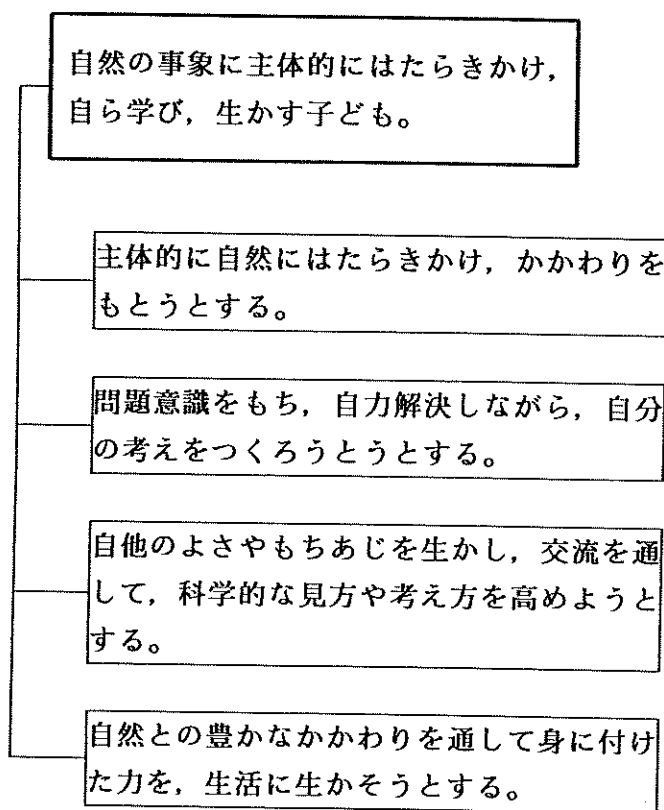 自然の事象に主体的にはたらきかけ，
自ら学び，生かす子ども。
主体的に自然にはたらきかけ，かかわりを
もとうとする。
問題意識をもち，自力解決しながら，自分
の考えをつくろうとうとする。
自他のよさやもちあじを生かし，交流を通
して，科学的な見方や考え方を高めようと
する。
自然との豊かなかかわりを通して身に付け
た力を，生活に生かそうとする。